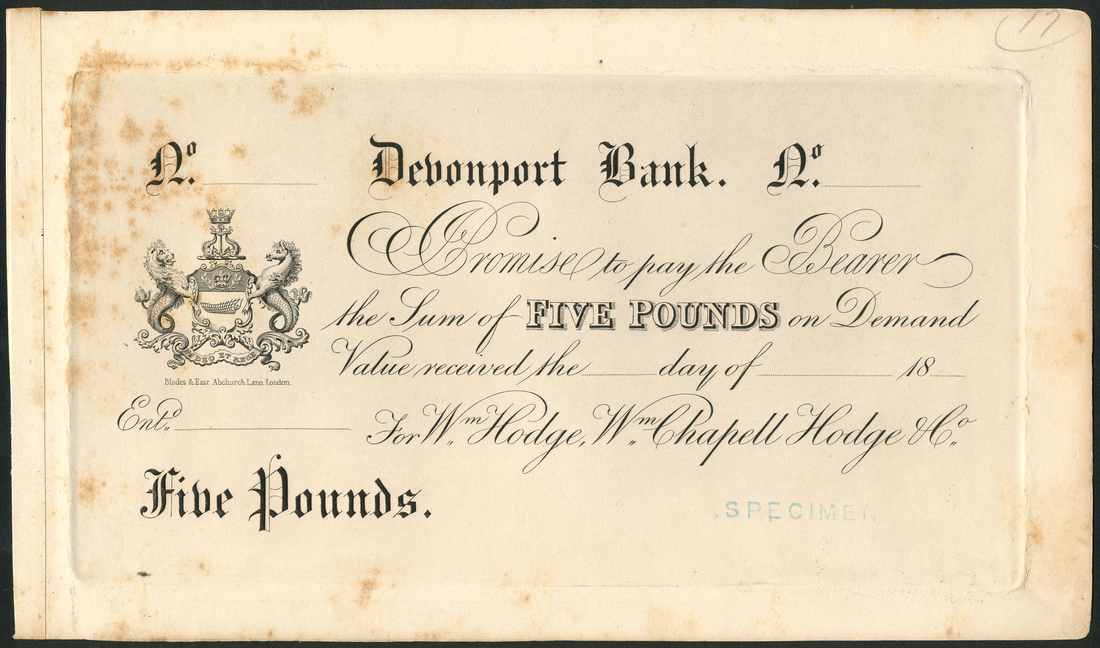 17
No. Devonport Bank. No.
I Promise to pay the Bearer
the Sum of FIVE POUNDS on Demand
Value received the day of 18
DEO ET REGI
Blades & East. Abchurch Lane, London.
Entd. For Wm. Hodge, Wm. Chapell Hodge & Co.
Five Pounds.
SPECIMEN